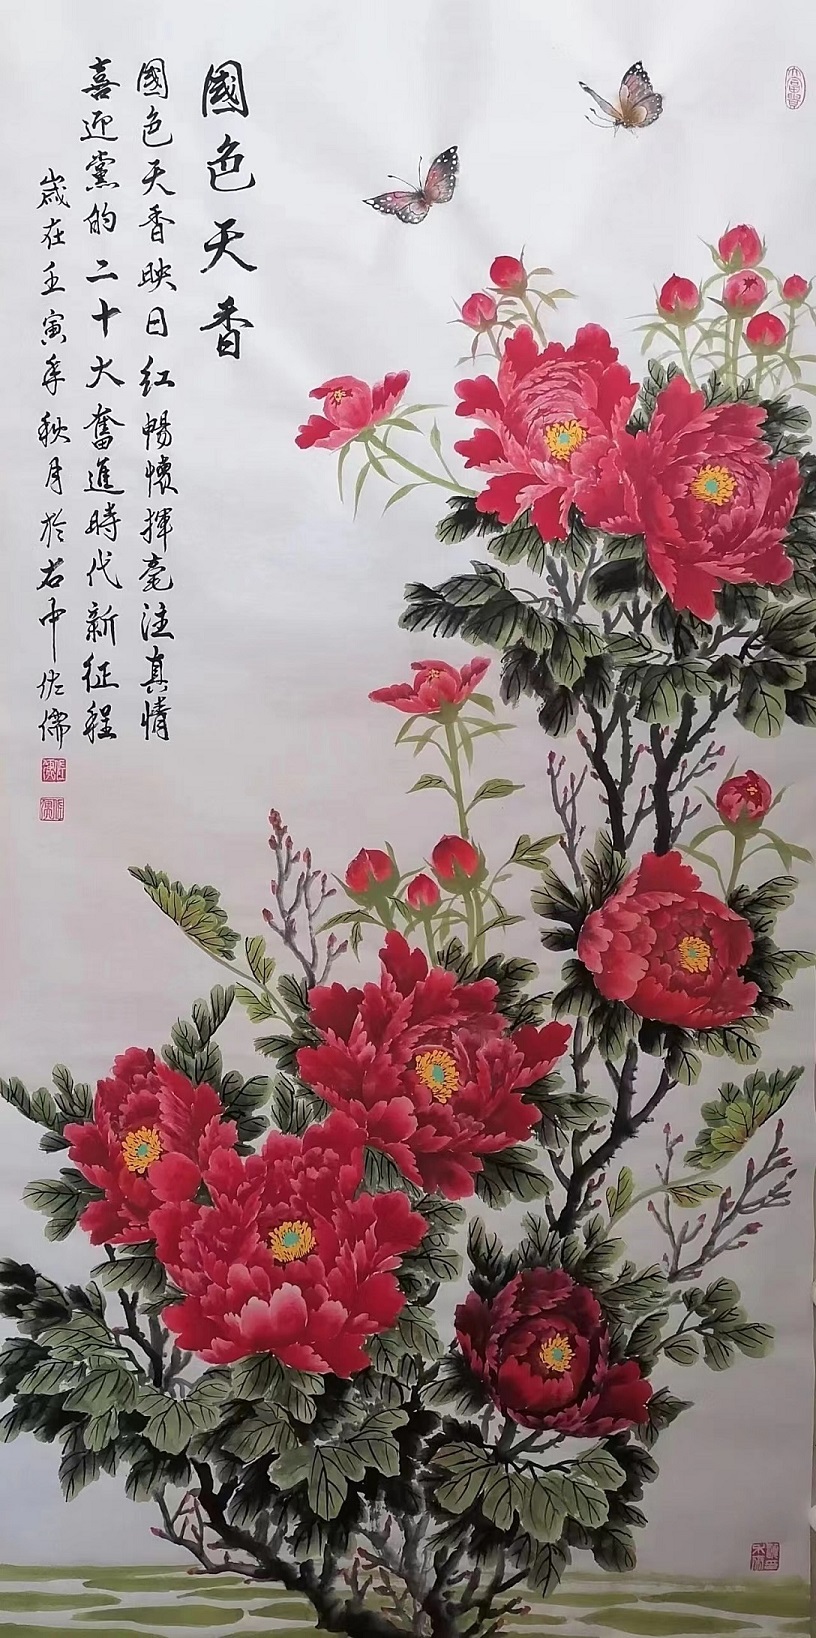 國色天香
國色天香映日红暢懷揮毫注真情
喜迎黨的二十大奮進時代新征程
嵗在壬寅年秋月於右中佐儒